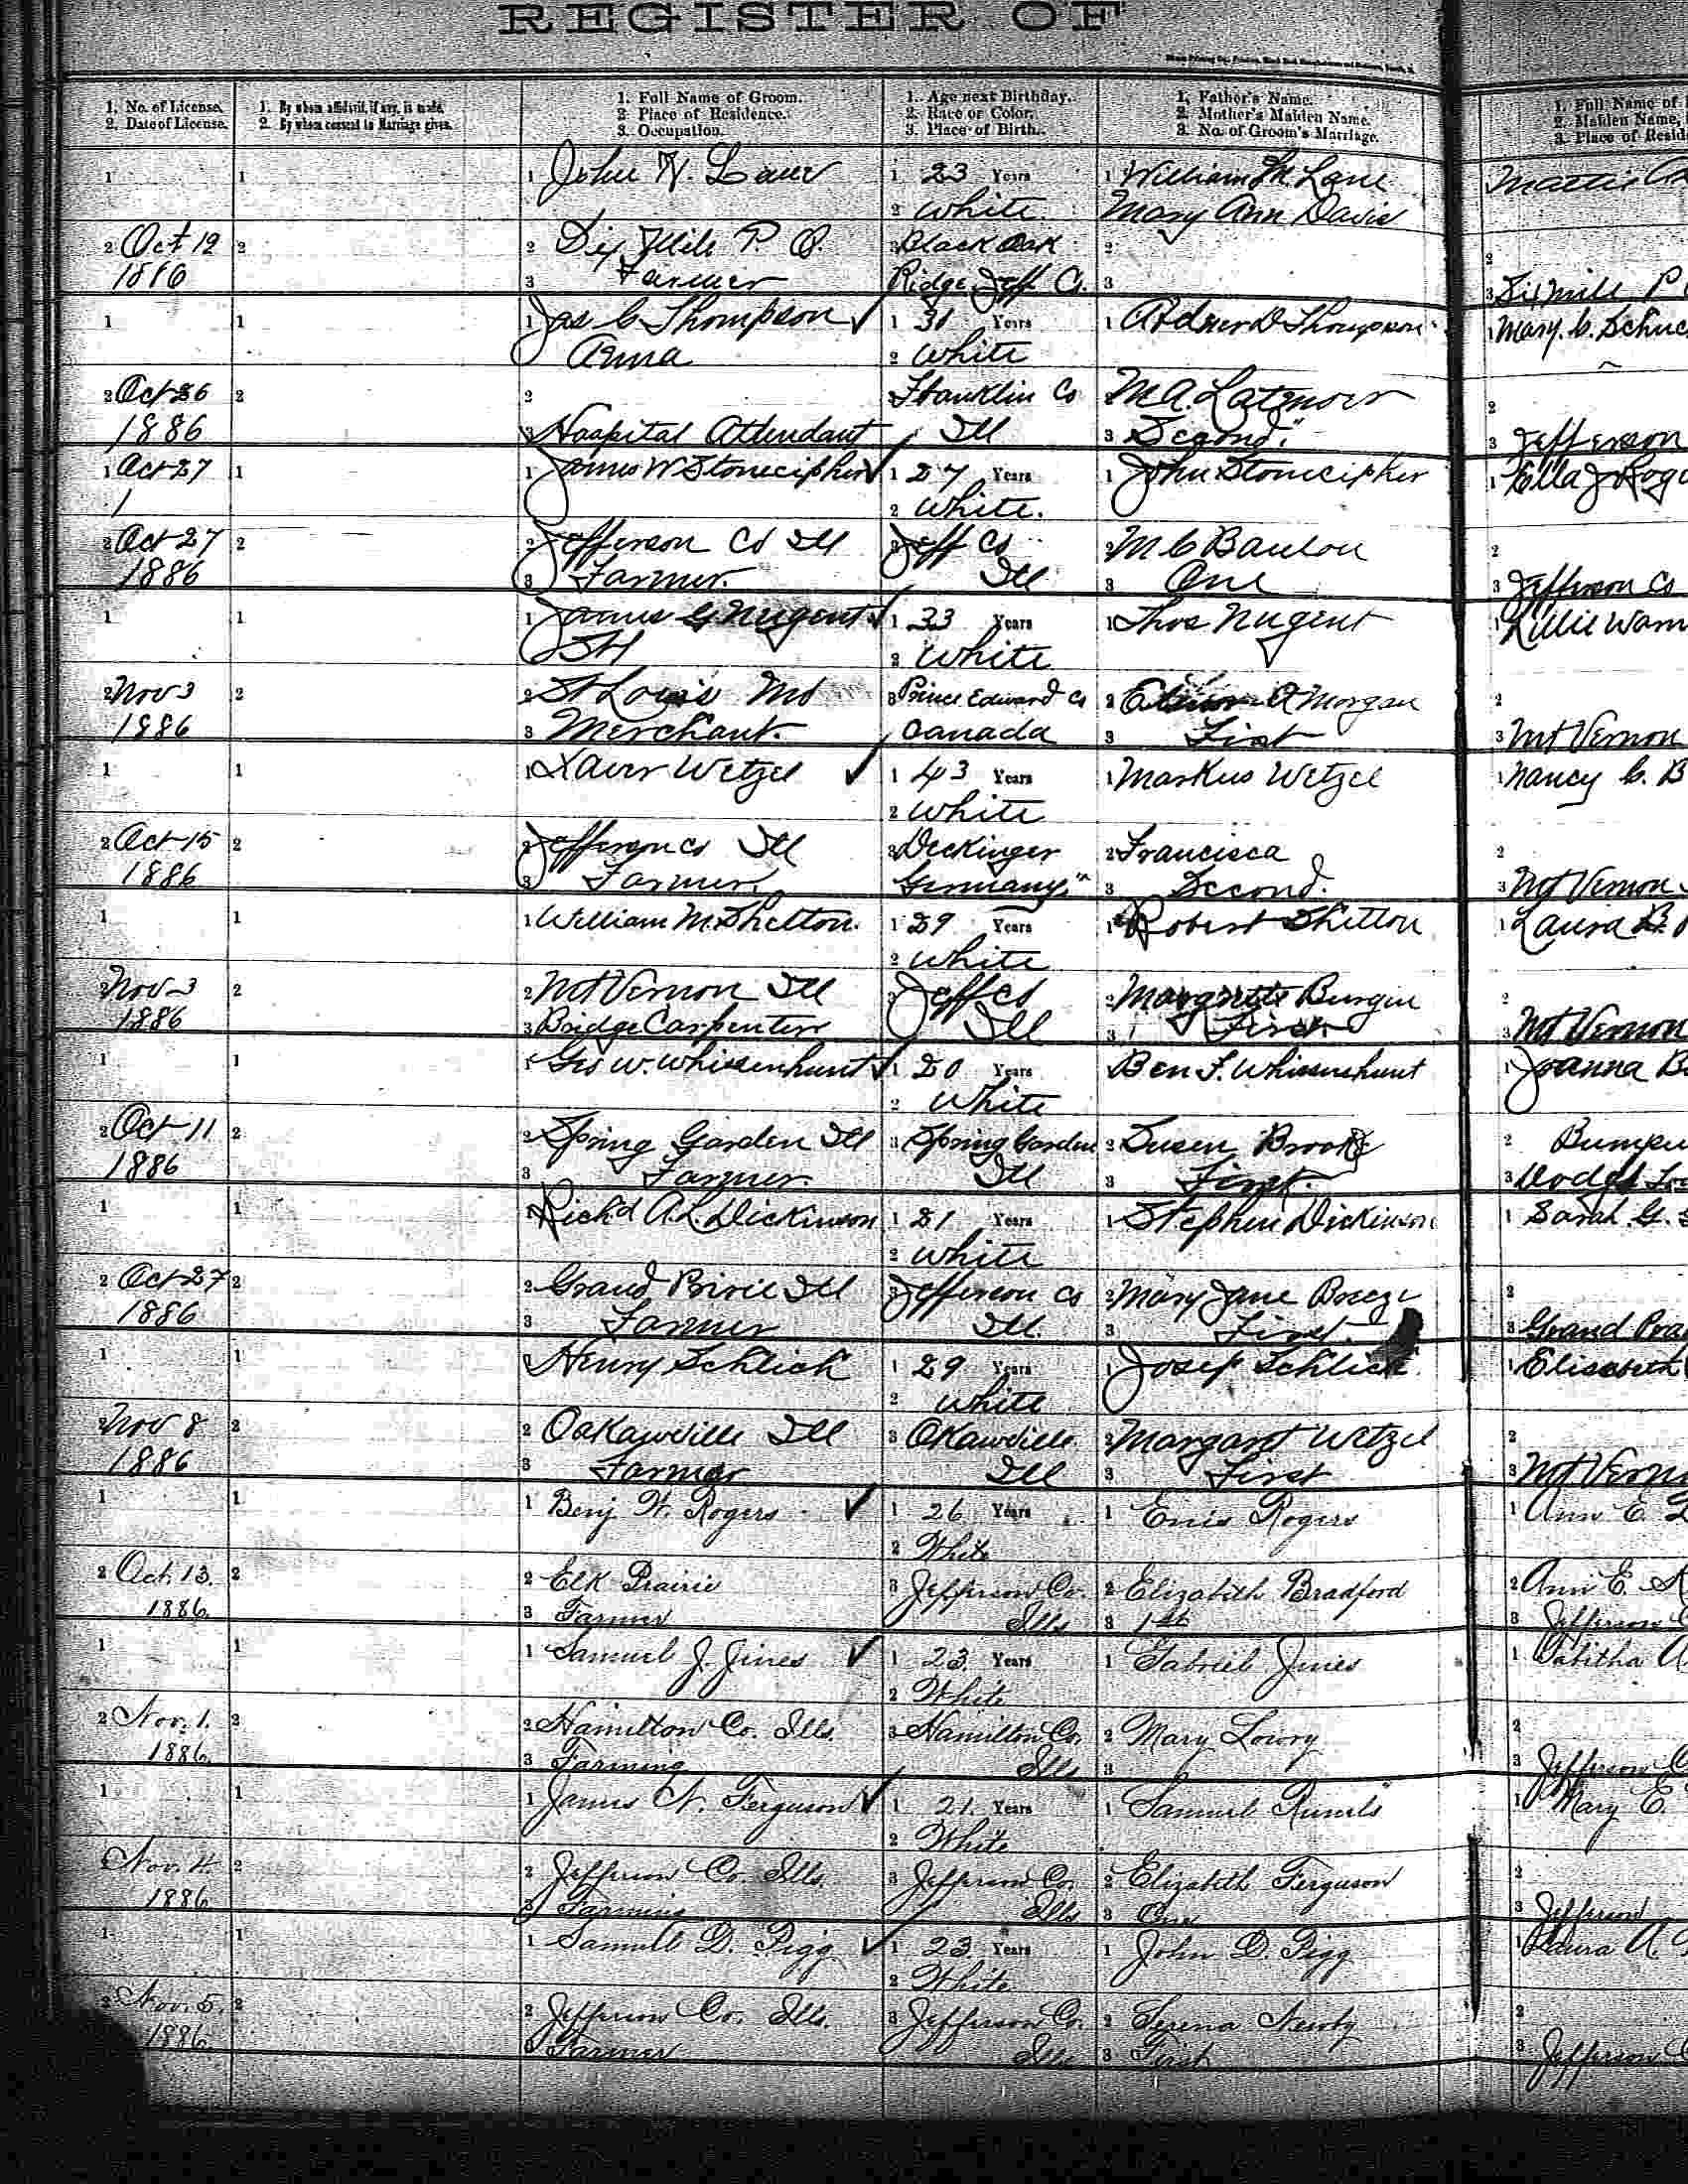 REGISTER OF
1. No. of License.
2. Date of License.
1. By whom affidavit, if any, is made.
2. By whom consent to Marriage given.
1. Full Name of Groom.
2. Place of Residence.
3. Occupation.
1. Age next Birthday.
2. Race or Color.
3. Place of Birth.
1. Father's Name.
2. Mother's Maiden Name.
3. No. of Groom's Marriage.
1. Full Name of
2. Maiden Name,
3. Place of Resid
1 1 1 John W. 1 23 Years 1 William M. Lane
2 White Mary Ann Davis
2 Oct 12 2 2 Six Mile P. O. 3 Black Oak 2 2
1886 3 Farmer Ridge Jeff Co. 3 3 Six mile P
1 1 1 Jas C Thompson 1 31 Years 1 Abner D Thompson 1 Mary. C. Schuc
Anna 2 White
2 Oct 26 2 2 3 Franklin Co M A. Latzmoir 2
1886 3 Hospital Attendant Ill 3 Second. 3 Jefferson
1 Oct 27 1 1 James W Stonecipher 1 27 Years 1 John Stonecipher 1 Ella J Roge
1 2 White.
2 Oct 27 2 2 Jefferson Co Ill 3 Jeff Co 2 M C 2
1886 3 Farmer. Ill 3 One 3 Jefferson Co
1 1 1 James G Nugent 1 33 Years 1 Thos Nugent 1 Lillie Warn
2 White
2 Nov 3 2 2 St Louis Mo 3 Prince Edward Co 2 Morgan 2
1886 3 Merchant. Canada 3 First 3 Mt Vernon
1 1 1 Xaver Wetzel 1 43 Years 1 Markus Wetzel 1 Nancy C. B
2 White
2 Oct 15 2 2 Jefferson Co Ill 3 Deckinger 2 Francisca 2
1886 3 Farmer. Germany 3 Second. 3 Mt Vernon
1 1 1 William M. Shelton. 1 29 Years 1 Robert Shelton 1 Laura B.
2 White
2 Nov 3 2 2 Mt Vernon Ill 3 Jeff Co 2 Burgin 2
1886 3 Bridge Carpenter Ill 3 First 3 Mt Vernon
1 1 1 Geo W. Whisenhunt 1 20 Years Ben F. Whisenhunt 1 Joanna B
2 White
2 Oct 11 2 2 Spring Garden Ill 3 Spring Garden 2 Susen Brooks 2 Bumpu
1886 3 Farmer. Ill 3 First. 3
1 1 1 Rich'd A. L. Dickinson 1 21 Years 1 Stephen Dickinson 1 Sarah G.
2 White
2 Oct 27 2 2 Grand Pirie Ill 3 Jefferson Co 2 Mary Jane Breeze 2
1886 3 Farmer Ill. 3 First. 3 Grand Pra
1 1 1 Henry Schlick 1 29 Years 1 Josef Schlick 1 Elisabeth
2 White
2 Nov 8 2 2 Oakawville Ill 3 Okawville 2 Margaret Wetzel 2
1886 3 Farmer Ill 3 First 3 Mt Verno
1 1 1 Benj. W. Rogers 1 26 Years 1 Enis Rogers 1 Ann E.
2 White
2 Oct. 13. 2 2 Elk Prairie 3 Jefferson Co. 2 Elizabeth Bradford 2 Ann E.
1886. 3 Farmer Ills 3 1st 3 Jefferson
1 1 1 Samuel J. Jines 1 23 Years 1 Gabriel Jines 1 Tabitha A
2 White
2 Nov. 1. 2 2 Hamilton Co. Ills. 3 Hamilton Co. 2 Mary Lowry 2
1886. 3 Farming Ills 3 3 Jefferson
1 1 1 James N. Ferguson 1 21 Years 1 Samuel 1 Mary E.
2 White
Nov. 4 2 2 Jefferson Co. Ills. 3 Jefferson Co. 2 Elizabeth Ferguson 2
1886 3 Farming Ills 3 One 3 Jefferson
1 1 1 Samuel D. Pigg. 1 23 Years 1 John D. Pigg 1 Laura A.
2 White
2 Nov. 5. 2 2 Jefferson Co. Ills. 3 Jefferson Co. 2 Serena Newby 2
1886. 3 Farmer Ills 3 First 3 Jefferson